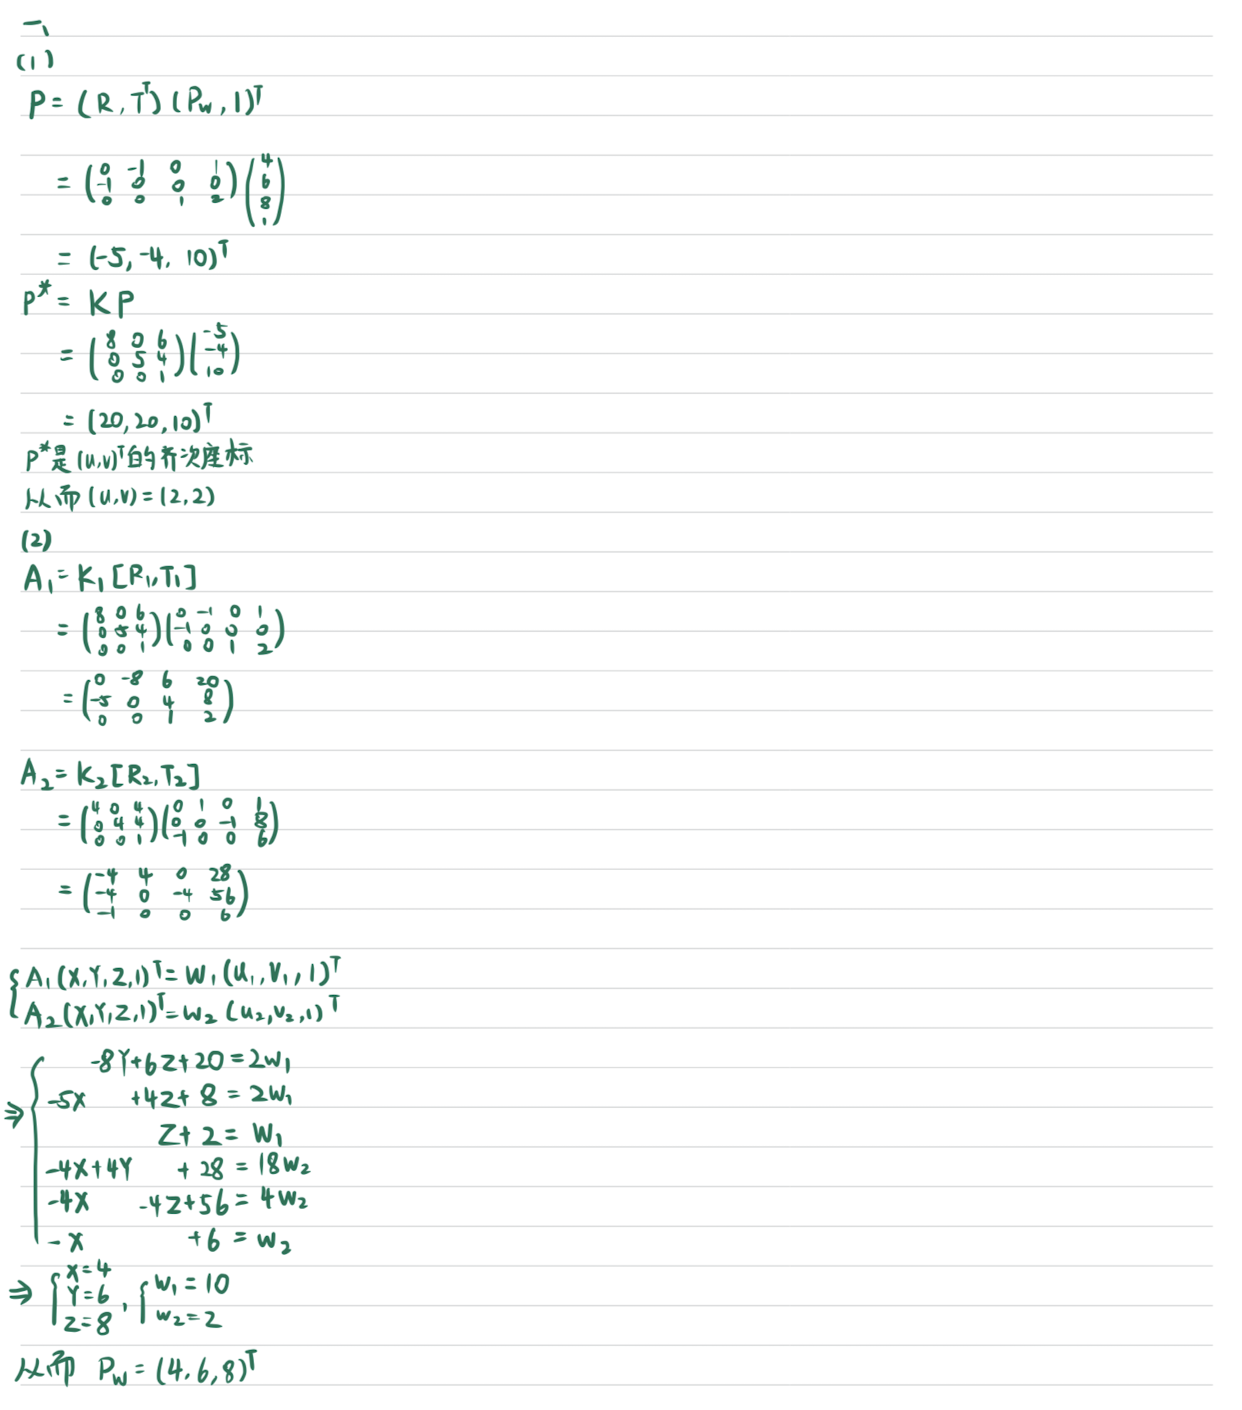 一、
(1)
P = (R, T^T)(P_w, 1)^T
= \begin{pmatrix} 0 & -1 & 0 & 1 \\ -1 & 0 & 0 & 0 \\ 0 & 0 & 1 & 2 \end{pmatrix} \begin{pmatrix} 4 \\ 6 \\ 8 \\ 1 \end{pmatrix}
= (-5, -4, 10)^T
P^* = KP
= \begin{pmatrix} 8 & 0 & 6 \\ 0 & 5 & 4 \\ 0 & 0 & 1 \end{pmatrix} \begin{pmatrix} -5 \\ -4 \\ 10 \end{pmatrix}
= (20, 20, 10)^T
P^*是(u,v)^T的齐次座标
从而(u,v)=(2,2)
(2)
A_1 = K_1[R_1, T_1]
= \begin{pmatrix} 8 & 0 & 6 \\ 0 & 5 & 4 \\ 0 & 0 & 1 \end{pmatrix} \begin{pmatrix} 0 & -1 & 0 & 1 \\ -1 & 0 & 0 & 0 \\ 0 & 0 & 1 & 2 \end{pmatrix}
= \begin{pmatrix} 0 & -8 & 6 & 20 \\ -5 & 0 & 4 & 8 \\ 0 & 0 & 1 & 2 \end{pmatrix}
A_2 = K_2[R_2, T_2]
= \begin{pmatrix} 4 & 0 & 4 \\ 0 & 4 & 4 \\ 0 & 0 & 1 \end{pmatrix} \begin{pmatrix} 0 & 1 & 0 & 1 \\ 0 & 0 & -1 & 8 \\ -1 & 0 & 0 & 6 \end{pmatrix}
= \begin{pmatrix} -4 & 4 & 0 & 28 \\ -4 & 0 & -4 & 56 \\ -1 & 0 & 0 & 6 \end{pmatrix}
{ A_1(X,Y,Z,1)^T = W_1(u_1,v_1,1)^T
A_2(X,Y,Z,1)^T = w_2(u_2,v_2,1)^T
⇒ { -8Y+6Z+20=2w_1
-5X +4Z+8=2w_1
Z+2=w_1
-4X+4Y +28=18w_2
-4X -4Z+56=4w_2
-X +6=w_2
⇒ { X=4 Y=6 Z=8 , { w_1=10 w_2=2
从而 P_w=(4,6,8)^T